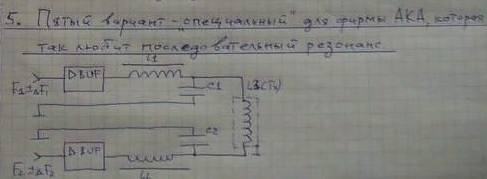 5. Пятый вариант - "специальный" для фирмы АКА, которая
так любит последовательный резонанс.
L1
DBUF
F1±ΔF1
C1
L3(Tx)
C2
F2±ΔF2
DBUF